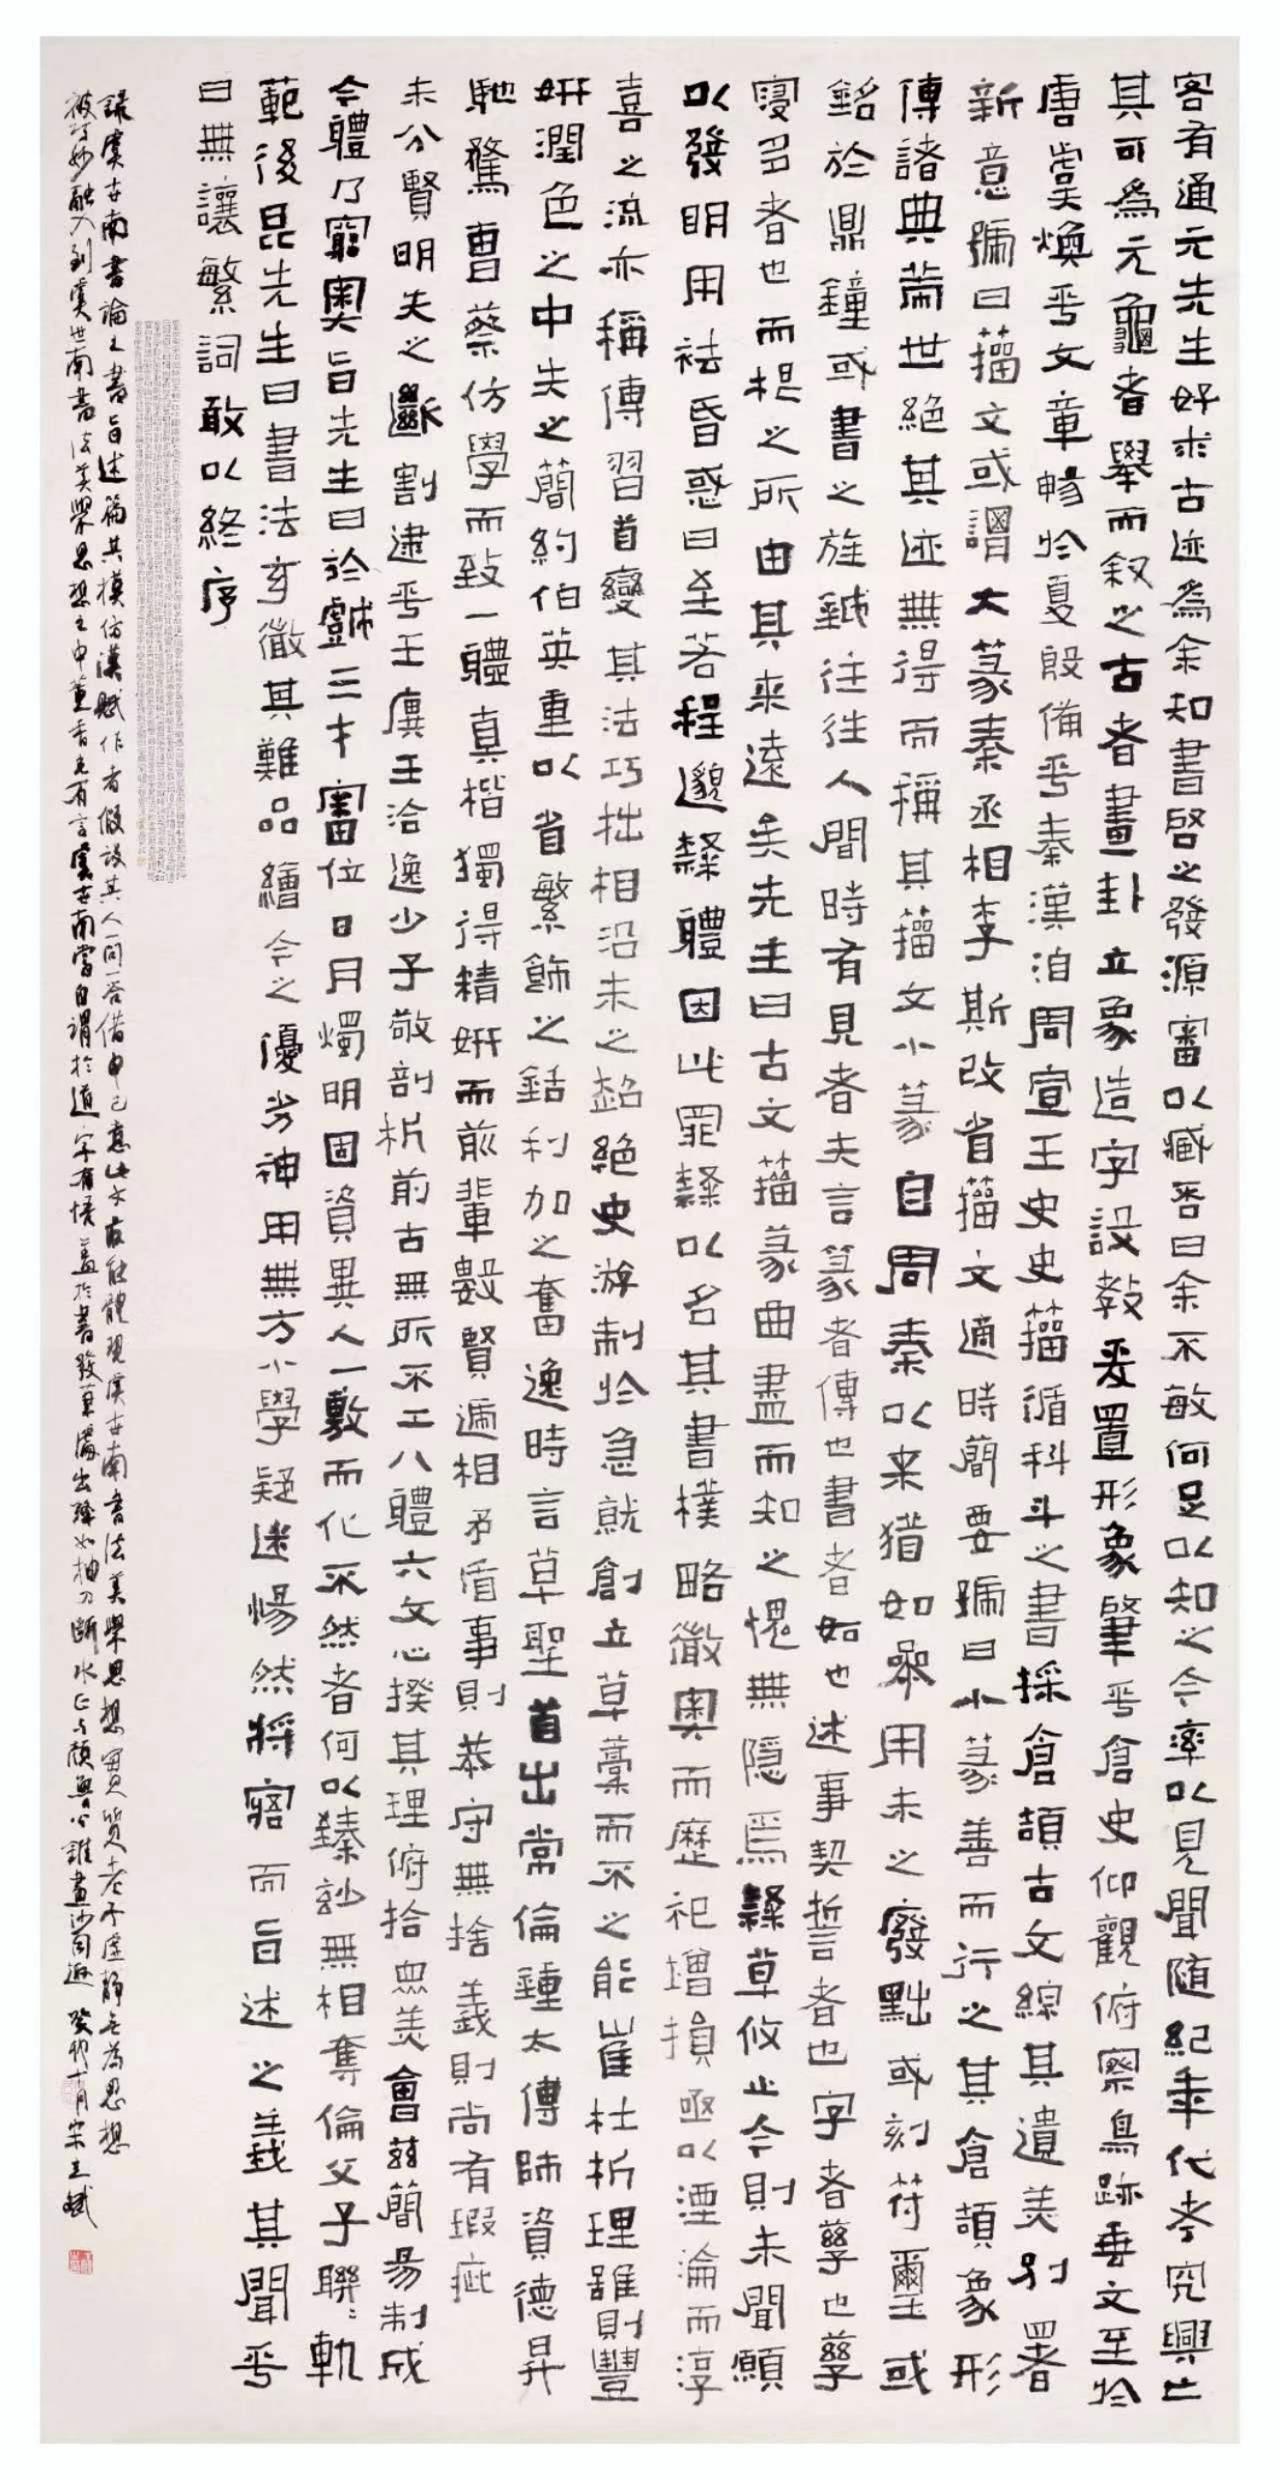 客有通元先生好求古迹為余知書啓之發源審以臧否曰余不敏何足以知之今率以見聞随紀年代考究興亡
其可為元龜者舉而叙之古者畫卦立象造字設教爰置形象肇乎倉史仰觀俯察鳥跡垂文至於
唐虞煥乎文章暢於夏殷備乎秦漢洎周宣王史史籀循科斗之書採倉頡古文綜其遺美别署
新意號曰籀文或謂大篆秦丞相李斯改省籀文適時簡要號曰小篆善而行之其倉頡象形
傳諸典策世絶其迹無得而稱其籀文小篆自周秦以来猶或參用未之廢黜或刻符璽或
銘於鼎鐘或書之旌鉞往往人間時有見者夫言篆者傳也書者如也述事契誓者也字者孳也孳
寖多者也而根之所由其來遠矣先生曰古文籀篆曲盡而知之愧無隱焉隸草攸止今則未聞願
以發明用祛昏惑曰至若程邈隸體因此罪隸以名其書樸略微奥而歷祀增損亟以湮淪而淳
喜之流亦稱傳習首變其法巧拙相沿未之超絶史游制於急就創立草藁而不之能崔杜析理雖則豐
妍潤色之中失之簡約伯英重以省繁飾之銛利加之奮逸時言草聖首出常倫鍾太傅師資德昇
馳騖曹蔡仿學而致一體真楷獨得精妍而前輩數賢遞相矛盾事則恭守無捨義則尚有瑕疵
未分賢明失之斷割逮乎王廙王洽逸少子敬剖析前古無所不工八體六文必揆其理俯拾衆美會茲簡易制成
今體乃窮奥旨先生曰於戲三才審位日月燭明固資異人一敷而化不然者何以臻妙無相奪倫父子聯軌
範後昆先生曰書法玄微其難品繪今之優劣神用無方小學疑迷惕然將寤而旨述之義其聞乎
曰無讓繁詞敢以終序
録虞世南書論之書旨述篇其模仿漢賦作者假設其人問答借申己意此文最能體現虞世南書法美學思想實質老子虚静無為思想
被巧妙融入到虞世南書法美學思想之中董香光有言虞世南嘗自謂於道字有悟蓋於書發筆處出鋒如抽刀斷水正與顔魯公錐畫沙同趣 癸卯 宋立斌